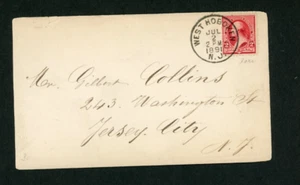 WEST HOBOKEN
JUL
2
2 PM
1891
N.J.
Mr. Gilbert Collins
243 Washington St
Jersey City
N. J.